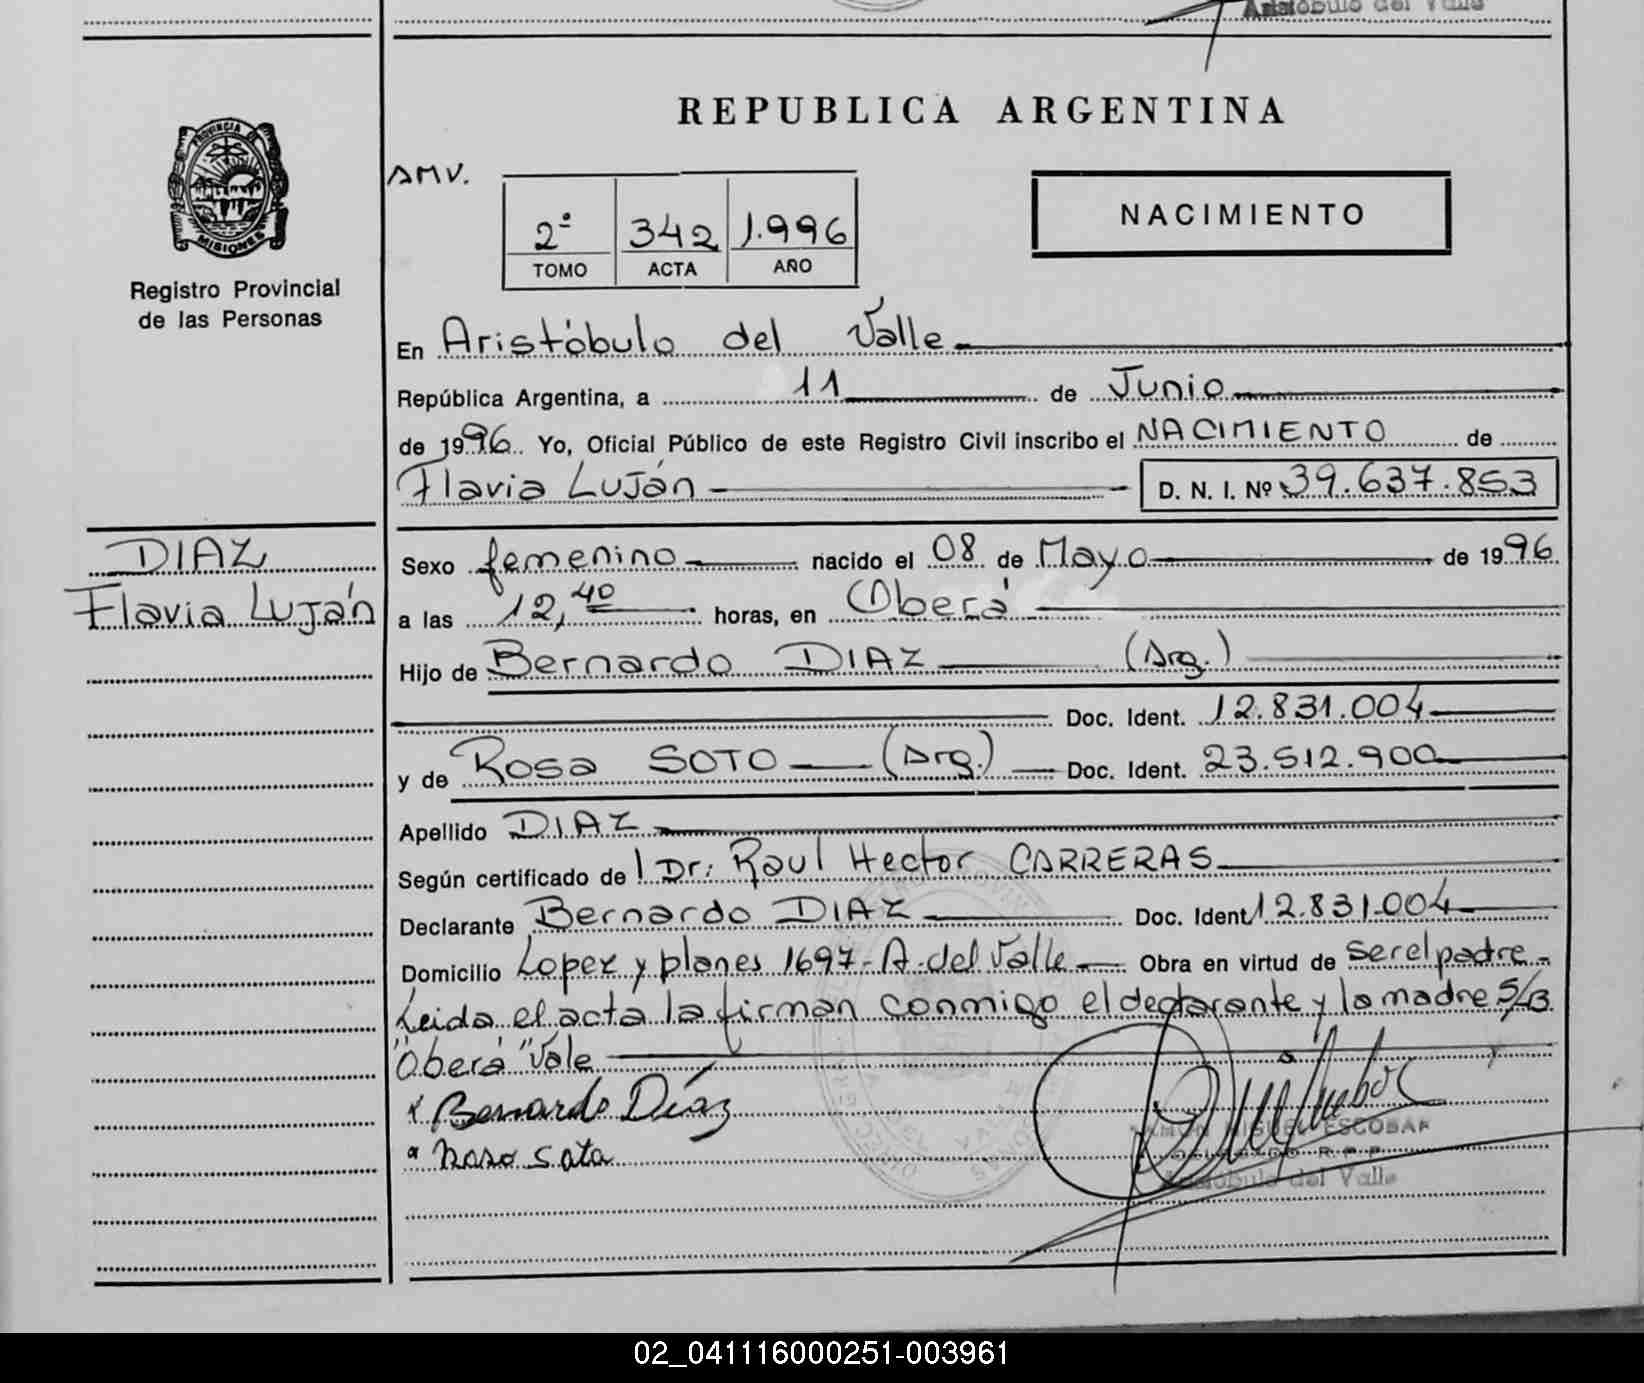 Aristóbulo del Valle
REPUBLICA ARGENTINA
PROVINCIA DE
MISIONES
Registro Provincial
de las Personas
AMV.
2º 342 1.996
TOMO ACTA AÑO
NACIMIENTO
En Aristóbulo del Valle
República Argentina, a 11 de Junio
de 1996 Yo, Oficial Público de este Registro Civil inscribo el NACIMIENTO de
Flavia Luján D. N. I. Nº 39.637.853
DIAZ
Flavia Luján
Sexo femenino nacido el 08 de Mayo de 1996
a las 12,40 horas, en Oberá
Hijo de Bernardo DIAZ (Arg.)
Doc. Ident. 12.831.004
y de Rosa SOTO (Arg.) Doc. Ident. 23.512.900
Apellido DIAZ
Según certificado de Dr: Raul Hector CARRERAS
Declarante Bernardo DIAZ Doc. Ident 12.831.004
Domicilio Lopez y planes 1697- A. del Valle Obra en virtud de ser el padre.
Leida el acta la firman conmigo el declarante y la madre S/B
"Oberá" Vale
x Bernardo Díaz
Roso Sata
RAMON MIGUEL ESCOBAR
R.P.P.
Aristóbulo del Valle
02_041116000251-003961